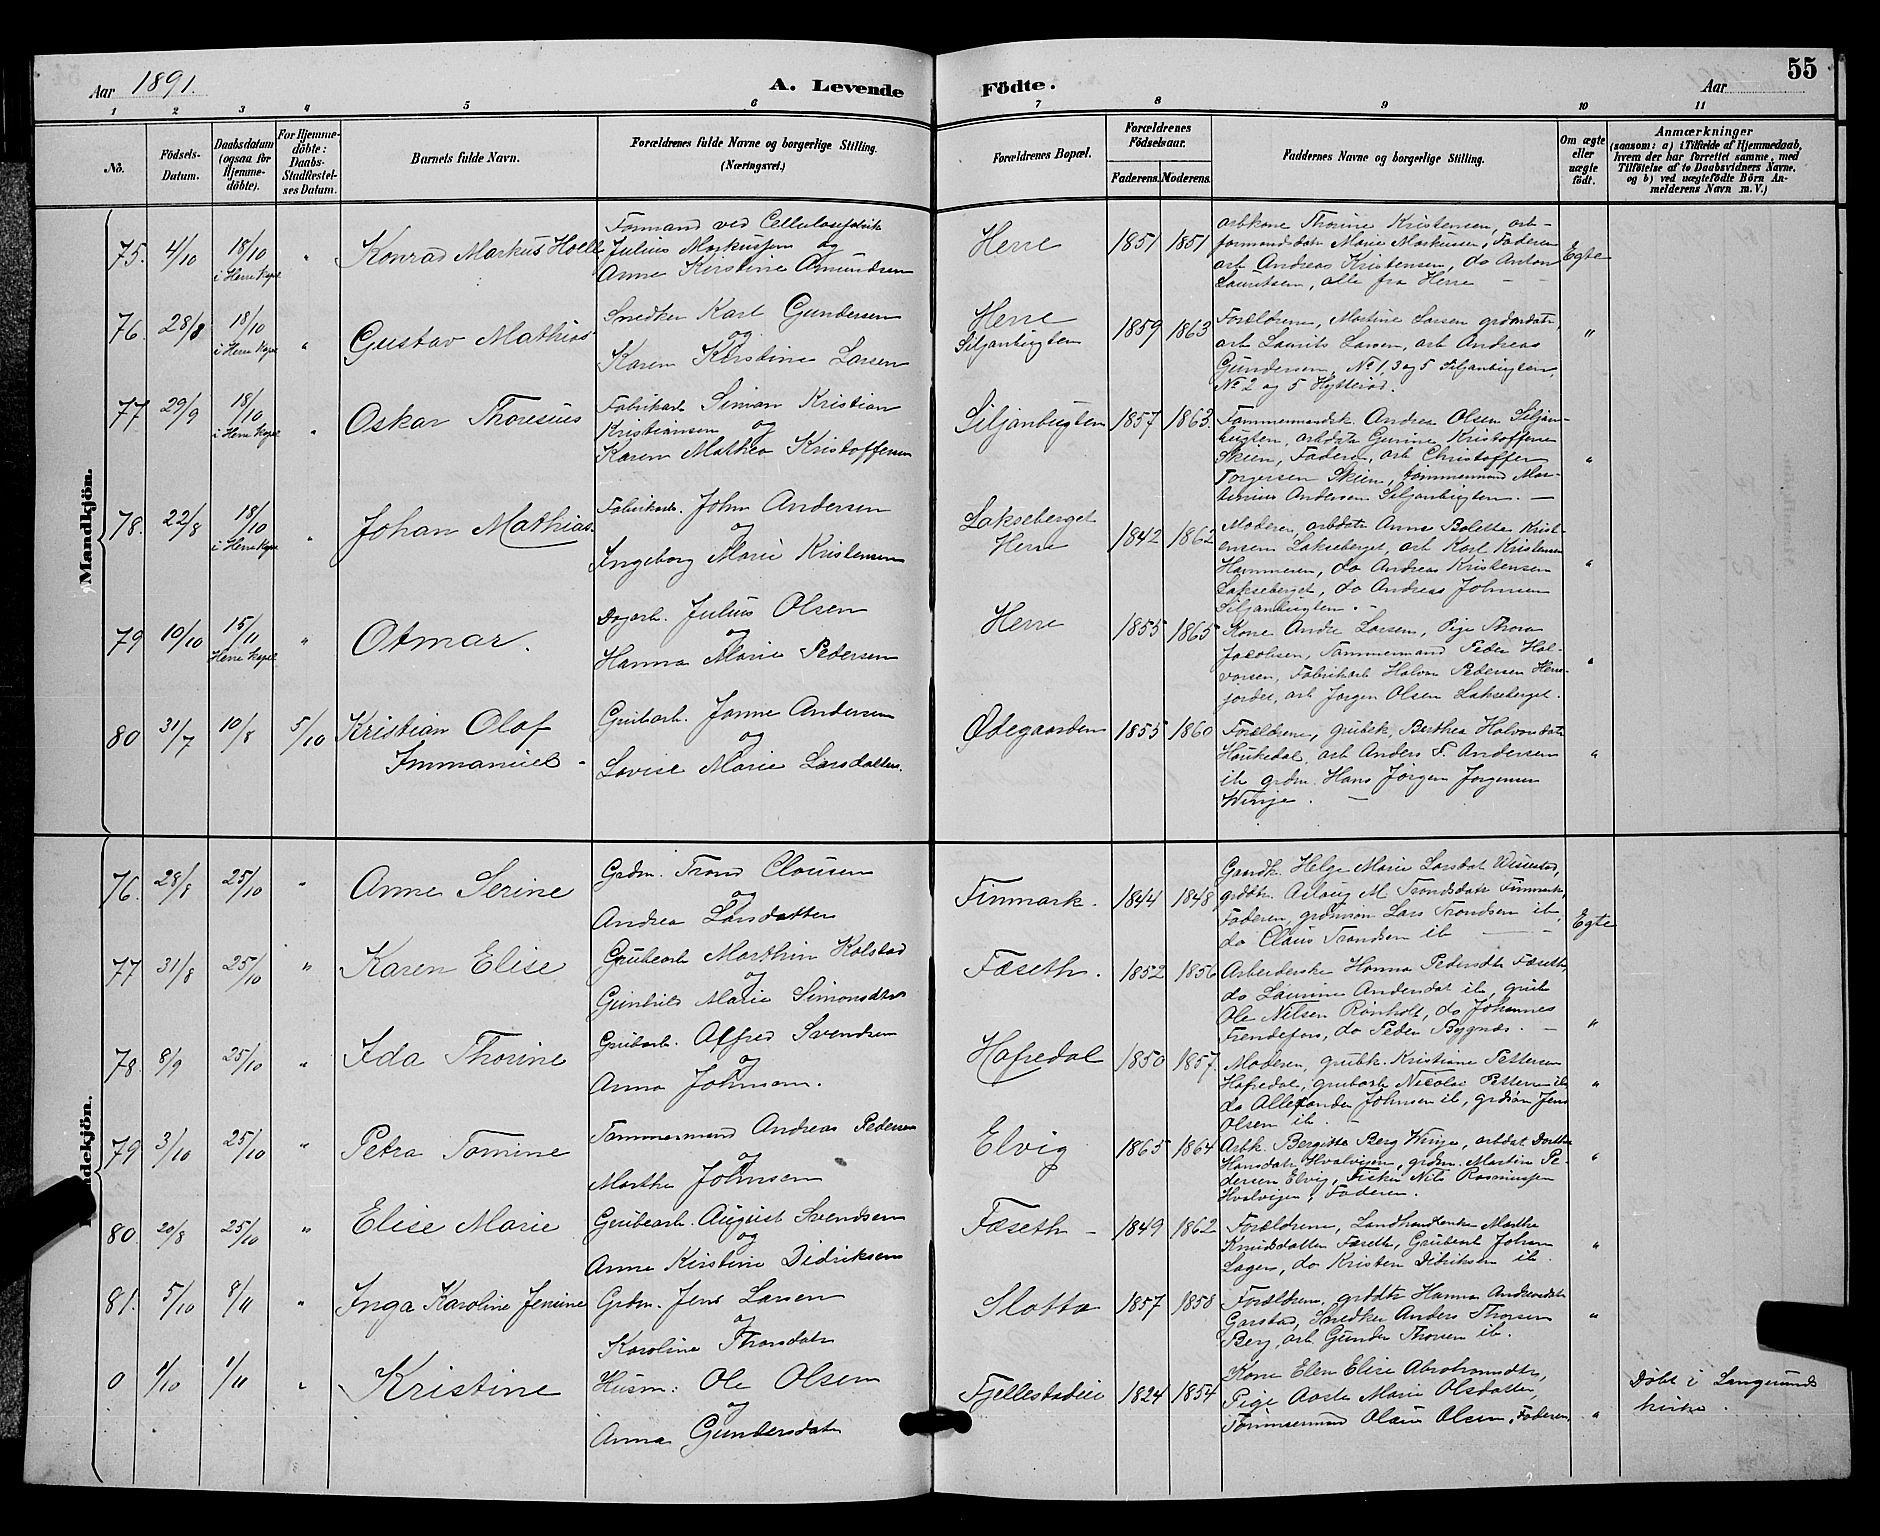 Aar 1891.
A. Levende Födte.
Aar
55
1 2 3 4 5 6 7 8 9 10 11
No.
Födsels-Datum.
Daabsdatum (ogsaa for Hjemme-döbte).
For Hjemme-döbte: Daabs-Stadfestel-ses Datum.
Barnets fulde Navn.
Forældrenes fulde Navne og borgerlige Stilling. (Næringsvei.)
Forældrenes Bopæl.
Forældrenes Födselsaar.
Faderens. Moderens.
Faddernes Navne og borgerlige Stilling.
Om ægte eller uægte födt.
Anmærkninger
(saasom: a) i Tilfælde af Hjemmedaab, hvem der har forrettet samme, med Tilföielse af to Daabsvidners Navne, og b) ved uægtefödte Börn An-melderens Navn m. V.)
Mandkjön.
75. 4/10 18/10 i Herre Kapel " Konrad Markus Hoell
Formand ved Cellulosefabrik
Julius Markussen og
Anne Kirstine Amundsen
Herre 1851 1851
arbkone Thorine Kristensen, arb-
formanddatr Marie Markussen, Faderen
arb Andreas Kristensen, do Anton
Lauritsen, alle fra Herre
Egte
76. 28/8 18/10 i Herre Kapel " Gustav Mathias
Snedker Karl Gundersen
og
Karen Kirstine Larsen
Herre
Siljanbugten 1859 1863
Forældrene, Martine Larsen grdmdatr,
arb Laurits Larsen, arb Andreas
Gundersen, No 1, 3 og 5 Siljanbugten,
No 2 og 5 Hytterød.
"
77. 29/9 18/10 i Herre Kapel " Oskar Thoresius
Fabrikarb Simon Kristian
Kristiansen og
Karen Mathea Kristoffersen
Siljanbugten 1857 1863.
Tømmermandsk. Andrea Olsen Siljan-
bugten, arbdatr Gurine Kristoffersen
Skien, Faderen, arb Christoffer
Torgersen Skien, tømmermand Mar-
tinius Andersen Siljanbugten.
"
78. 22/8 18/10 i Herre Kapel " Johan Mathias.
Fabrikarb. John Andersen
og
Ingeborg Marie Kristensen
Lakseberget
Herre 1842 1862
Moderen, arbdatr Anne Bolette Krist-
ensen Lakseberget, arb Karl Kristensen
Hammeren, do Andreas Kristensen
Lakseberget, do Andreas Johnsen
Siljanbugten.
"
79 10/10 15/11 Herre Kapel " Otmar.
Dagarb. Julius Olsen
og
Hanna Marie Pedersen
Herre 1855 1865
Kone Andre Larsen, Pige Thora
Jacobsen, Tømmermand Peder Hal-
vorsen, Fabrikarb Halvor Pedersen Herre-
jordet, arb Jørgen Olsen Lakseberget.
"
80 31/7 10/8 5/10 Kristian Olaf
Immanuel
Grubarb. Janne Andersen
og
Lovise Marie Larsdatter.
Ødegaarden 1855 1860
Forældrene, grubek. Berthea Halvorsdatr
Haukedal, arb Anders T. Andersen
ib grdm. Hans Jørgen Jørgensen
Winje.
"
Kvindekjön.
76. 28/8 25/10 " Anne Serine
Grdm. Trond Clausen
og
Andrea Larsdatter
Finmark. 1844 1848
Gaardk. Helge Marie Larsdat
grdatr Aslaug M. Trondsdatr Finmark,
Faderen, grdmsøn Lars Trondsen ib,
do Claus Trondsen ib
Egte
77 31/8 25/10 " Karen Elise
Grubearb Marthin Kolstad
og
Gunhild Marie Simonsdtr
Fæseth. 1852 1856
Arbeiderske Hanna Pedersdtr Fæseth,
do Laurine Andersdat ib, grub
Ole Nilsen Rønholt, do Johannes
Trendefoss, do Peder Bygnæs.
"
78. 8/9 25/10 " Ida Thorine
Grubarb. Alfred Svendsen
og
Anna Johnsen.
Hafredal 1850 1857.
Moderen, grubk. Kristiane Pettersen
Hafredal, grubarb Nicolai Pettersen ib
do Allexander Johnsen ib, grdsøn Jens
Olsen ib.
"
79 3/10 25/10 " Petra Tomine
Tømmermand Andreas Pedersen
og
Marthe Johnsen
Elvig 1865 1864
Arbk. Bergitte Berg Winje, arbdat. Dorthe
Hansdatr Hvalvigen, grdm. Martin Pe-
dersen Elvig, Fisker Nils Rasmussen
Hvalvigen, Faderen.
"
80 20/8 25/10 " Elise Marie
Grubearb. August Svendsen
og
Anne Kirstine Didriksen
Fæseth 1849 1862
Forældrene, Landhandlerske Marthe
Knudsdatter Fæseth, Grubearb Johan
Lagen, do Kristen Didriksen ib.
"
81. 5/10 8/11 " Inga Karoline Jensine
Grdm. Jens Larsen
og
Karoline Thorsdatr
Slotta 1857 1858
Forældrene, grddtr Hanna Andreasdatr
Garstad, Snedker Anders Thorsen
Berg, arb Gunder Thorsen ib.
"
0 1/10 1/11 " Kristine
Husm: Ole Olsen
og
Anna Gundersdatr
Fjellestadeie 1824 1854
Kone Elen Elise Abrahamsdtr,
Pige Aaste Marie Olsdatter,
Tømmermand Olaus Olsen, Faderen
"
Døbt i Langesunds
kirke.